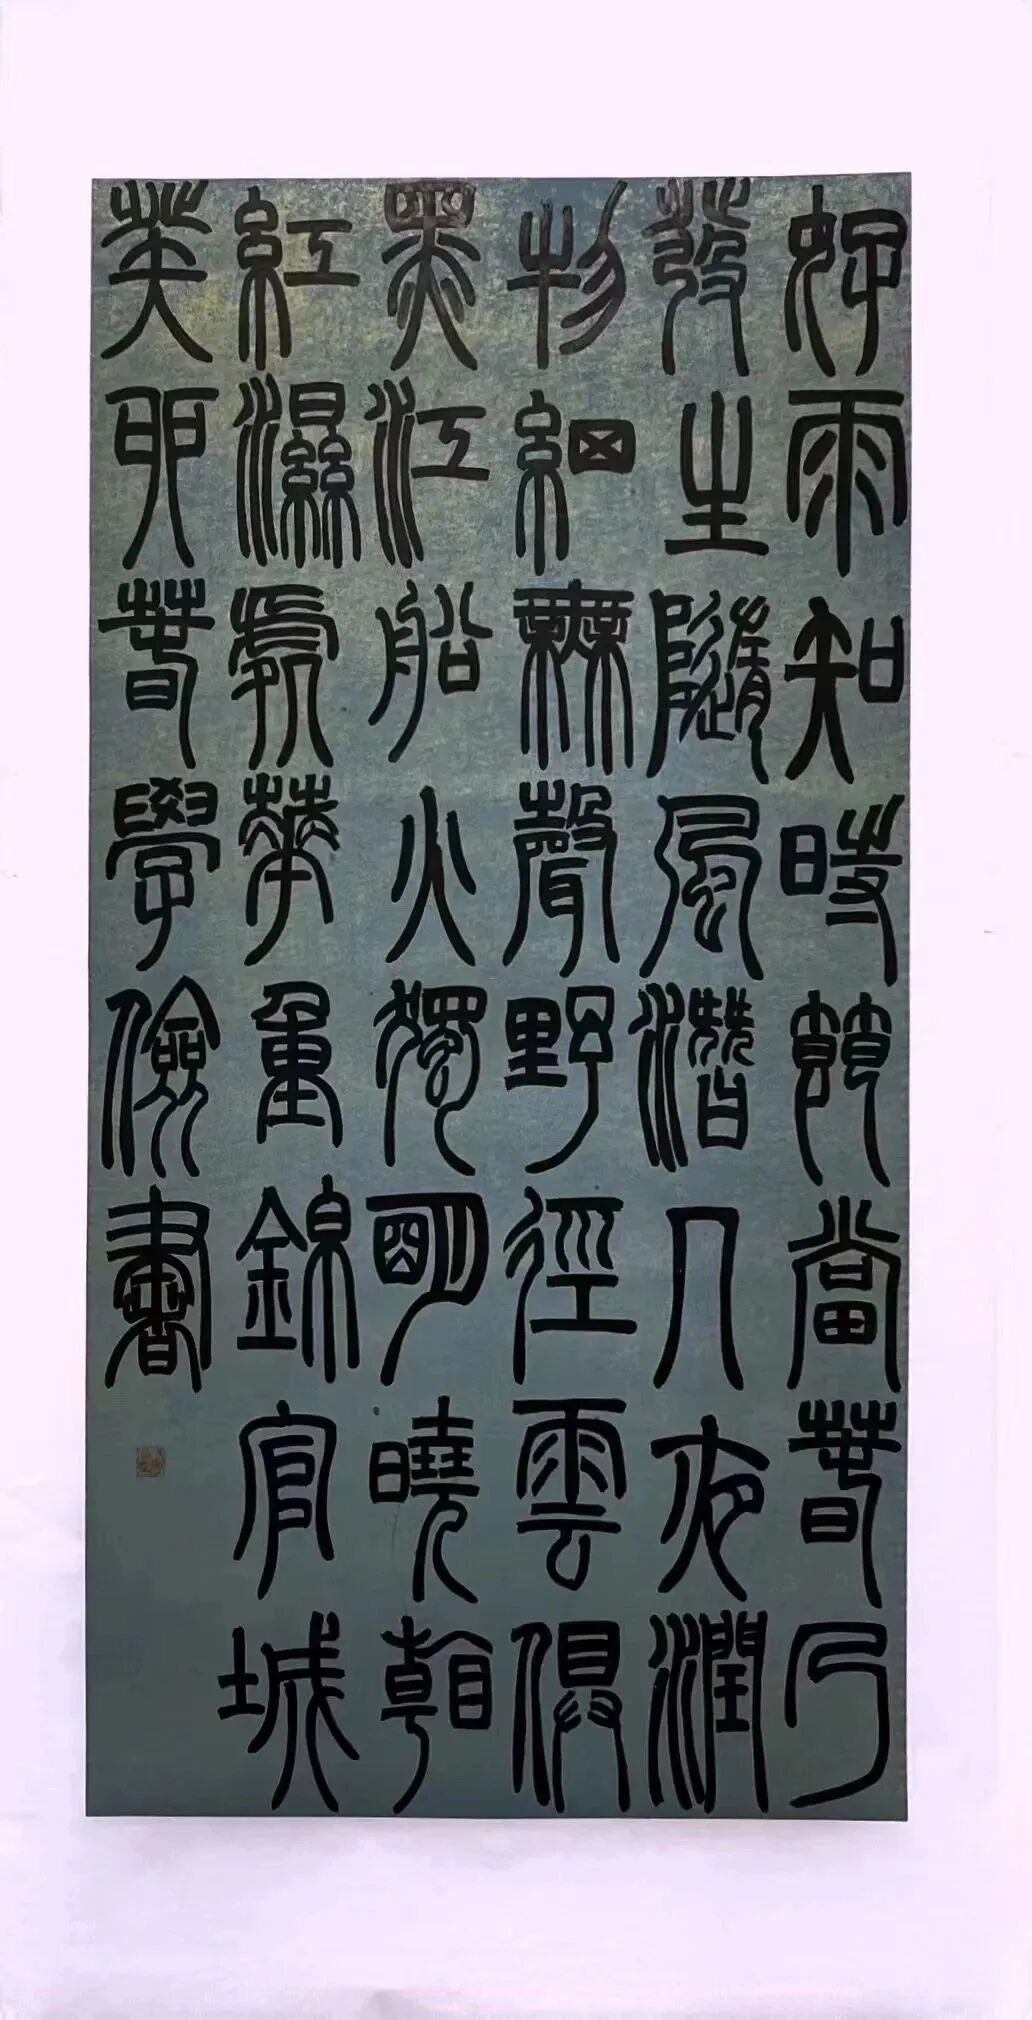 好雨知時節當春乃
發生隨風潛入夜潤
物細無聲野徑雲俱
黑江船火獨明曉看
紅濕處華重錦官城
癸卯春學儉書